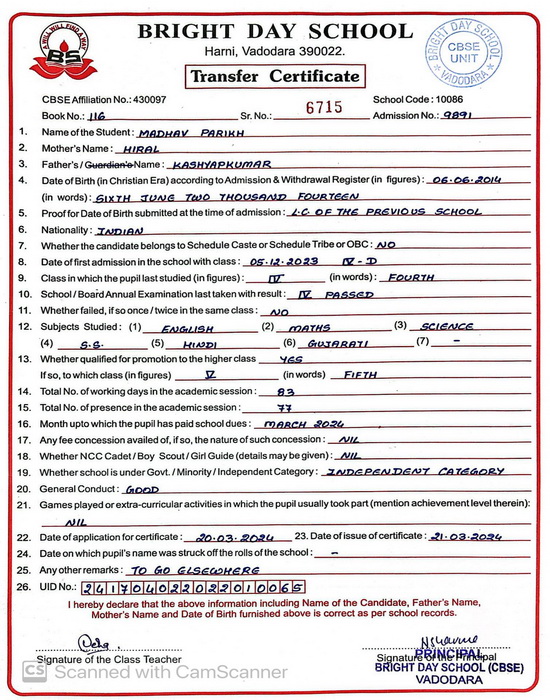 A WILL WILL FIND A WAY
BS
BRIGHT DAY SCHOOL
Harni, Vadodara 390022.
Transfer Certificate
BRIGHT DAY SCHOOL
CBSE
UNIT
VADODARA
CBSE Affiliation No.: 430097 School Code : 10086
Book No.: 116 Sr. No.: 6715 Admission No.: 9891
1. Name of the Student : MADHAV PARIKH
2. Mother's Name : HIRAL
3. Father's / Guardian's Name : KASHYAPKUMAR
4. Date of Birth (in Christian Era) according to Admission & Withdrawal Register (in figures) : 06.06.2014
(in words) : SIXTH JUNE TWO THOUSAND FOURTEEN
5. Proof for Date of Birth submitted at the time of admission : L.C OF THE PREVIOUS SCHOOL
6. Nationality : INDIAN
7. Whether the candidate belongs to Schedule Caste or Schedule Tribe or OBC : NO
8. Date of first admission in the school with class : 05.12.2023 IV - D
9. Class in which the pupil last studied (in figures) : IV (in words) : FOURTH
10. School / Board Annual Examination last taken with result : IV PASSED
11. Whether failed, if so once / twice in the same class : NO
12. Subjects Studied : (1) ENGLISH (2) MATHS (3) SCIENCE
(4) S.S. (5) HINDI (6) GUJARATI (7) -
13. Whether qualified for promotion to the higher class YES
If so, to which class (in figures) V (in words) FIFTH
14. Total No. of working days in the academic session : 83
15. Total No. of presence in the academic session : 77
16. Month upto which the pupil has paid school dues : MARCH 2024
17. Any fee concession availed of, if so, the nature of such concession : NIL
18. Whether NCC Cadet / Boy Scout / Girl Guide (details may be given) : NIL
19. Whether school is under Govt. / Minority / Independent Category : INDEPENDENT CATEGORY
20. General Conduct : GOOD
21. Games played or extra-curricular activities in which the pupil usually took part (mention achievement level therein):
NIL
22. Date of application for certificate : 20.03.2024 23. Date of issue of certificate : 21.03.2024
24. Date on which pupil's name was struck off the rolls of the school : -
25. Any other remarks : TO GO ELSEWHERE
26. UID No.: 241704022022010065
I hereby declare that the above information including Name of the Candidate, Father's Name,
Mother's Name and Date of Birth furnished above is correct as per school records.
Signature of the Class Teacher Signature of the Principal
PRINCIPAL
BRIGHT DAY SCHOOL (CBSE)
VADODARA
CS Scanned with CamScanner